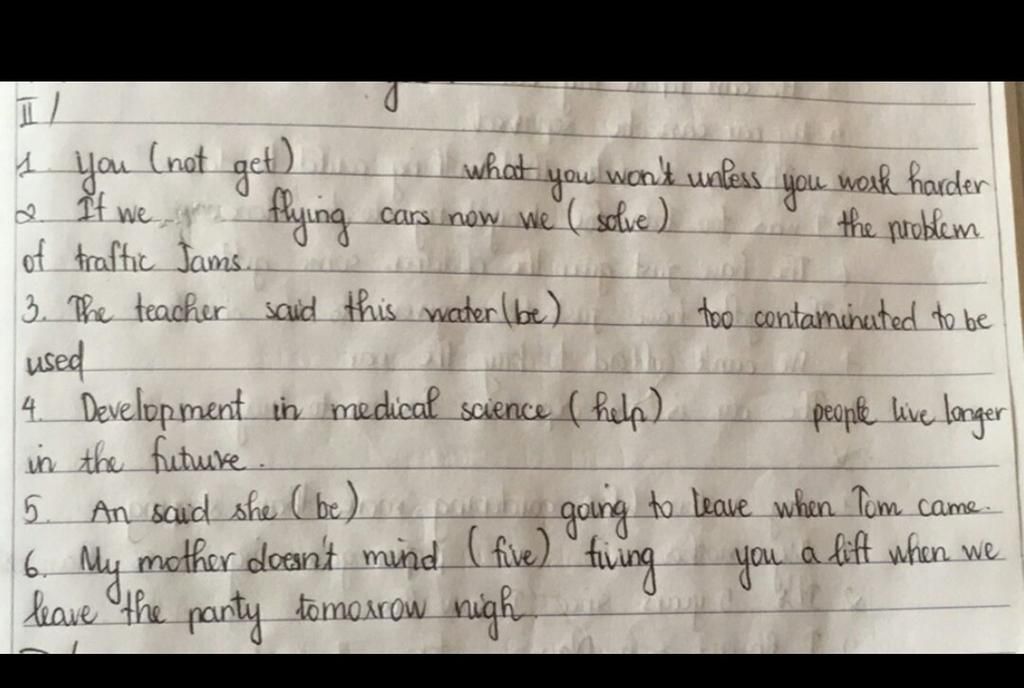 II/
1. you (not get) what you won't unless you work harder
2. If we flying cars now we (solve) the problem
of traffic Jams.
3. The teacher said this water (be) too contaminated to be
used
4. Development in medical science (help) people live longer
in the futuure.
5. An said she (be) going to leave when Tom came.
6. My mother doesn't mind (five) fiving you a lift when we
leave the party tomorrow nigh